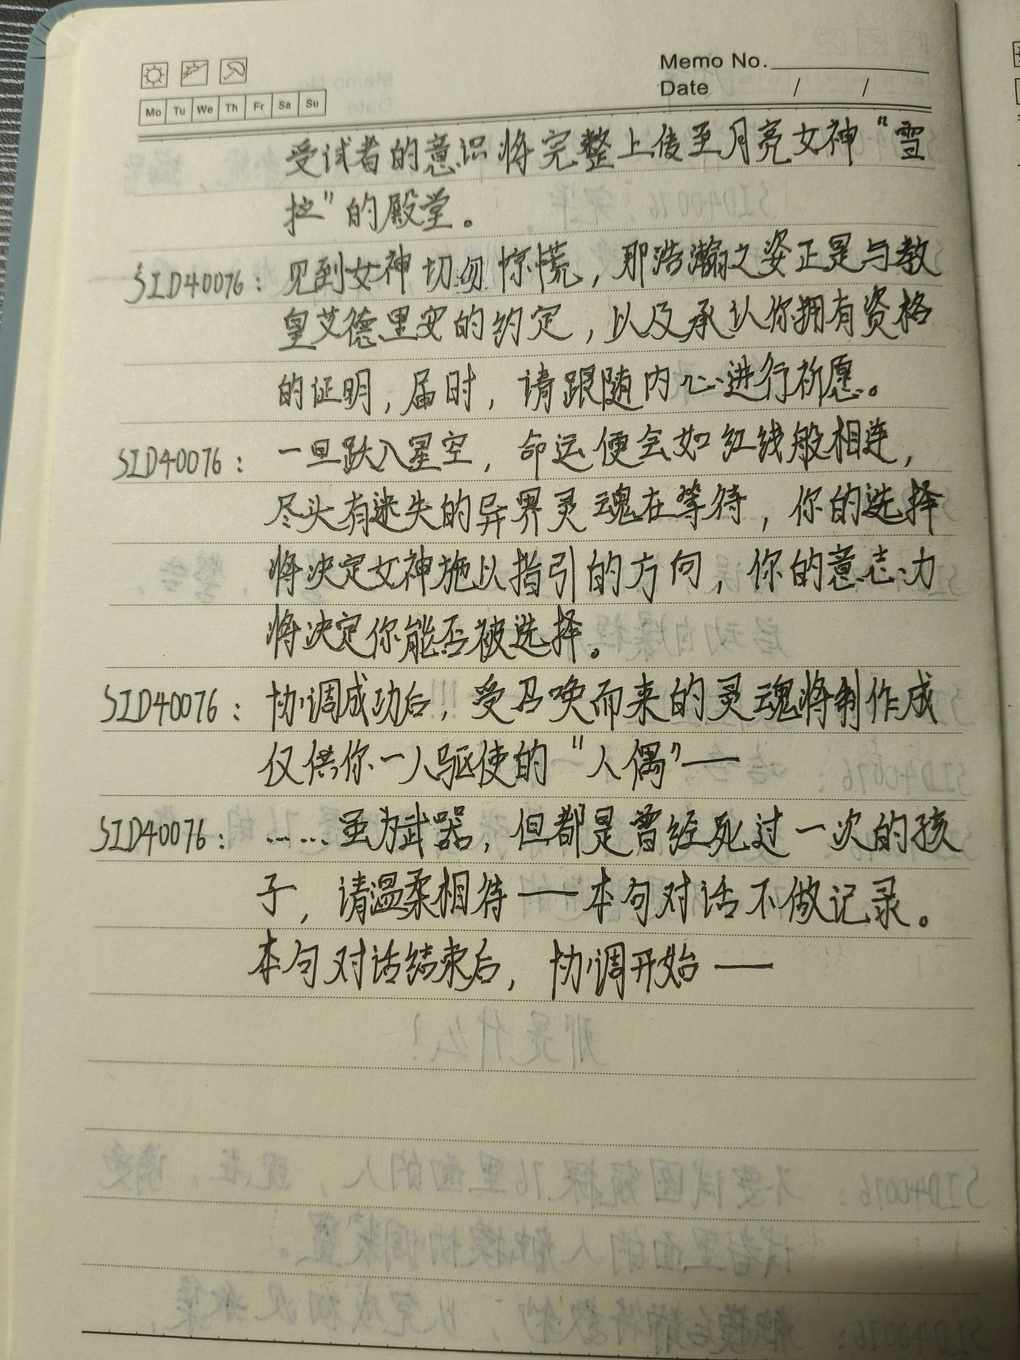 Memo No.
Date / /
Mo Tu We Th Fr Sa Su
受试者的意识将完整上传至月亮女神“雪
拉”的殿堂。
SID40076：见到女神切勿惊慌，那浩瀚之姿正是与教
皇艾德里安的约定，以及承认你拥有资格
的证明，届时，请跟随内心进行祈愿。
SID40076：一旦跃入星空，命运便会如红线般相连，
尽头有迷失的异界灵魂在等待，你的选择
将决定女神施以指引的方向，你的意志力
将决定你能否被选择。
SID40076：协调成功后，受召唤而来的灵魂将制作成
仅供你一人驱使的“人偶”——
SID40076：……虽为武器，但都是曾经死过一次的孩
子，请温柔相待——本句对话不做记录。
本句对话结束后，协调开始——
那是什么！
SID40076：不要试图窥探76里面的人，现在，请受
试者里面的人触摸协调装置。